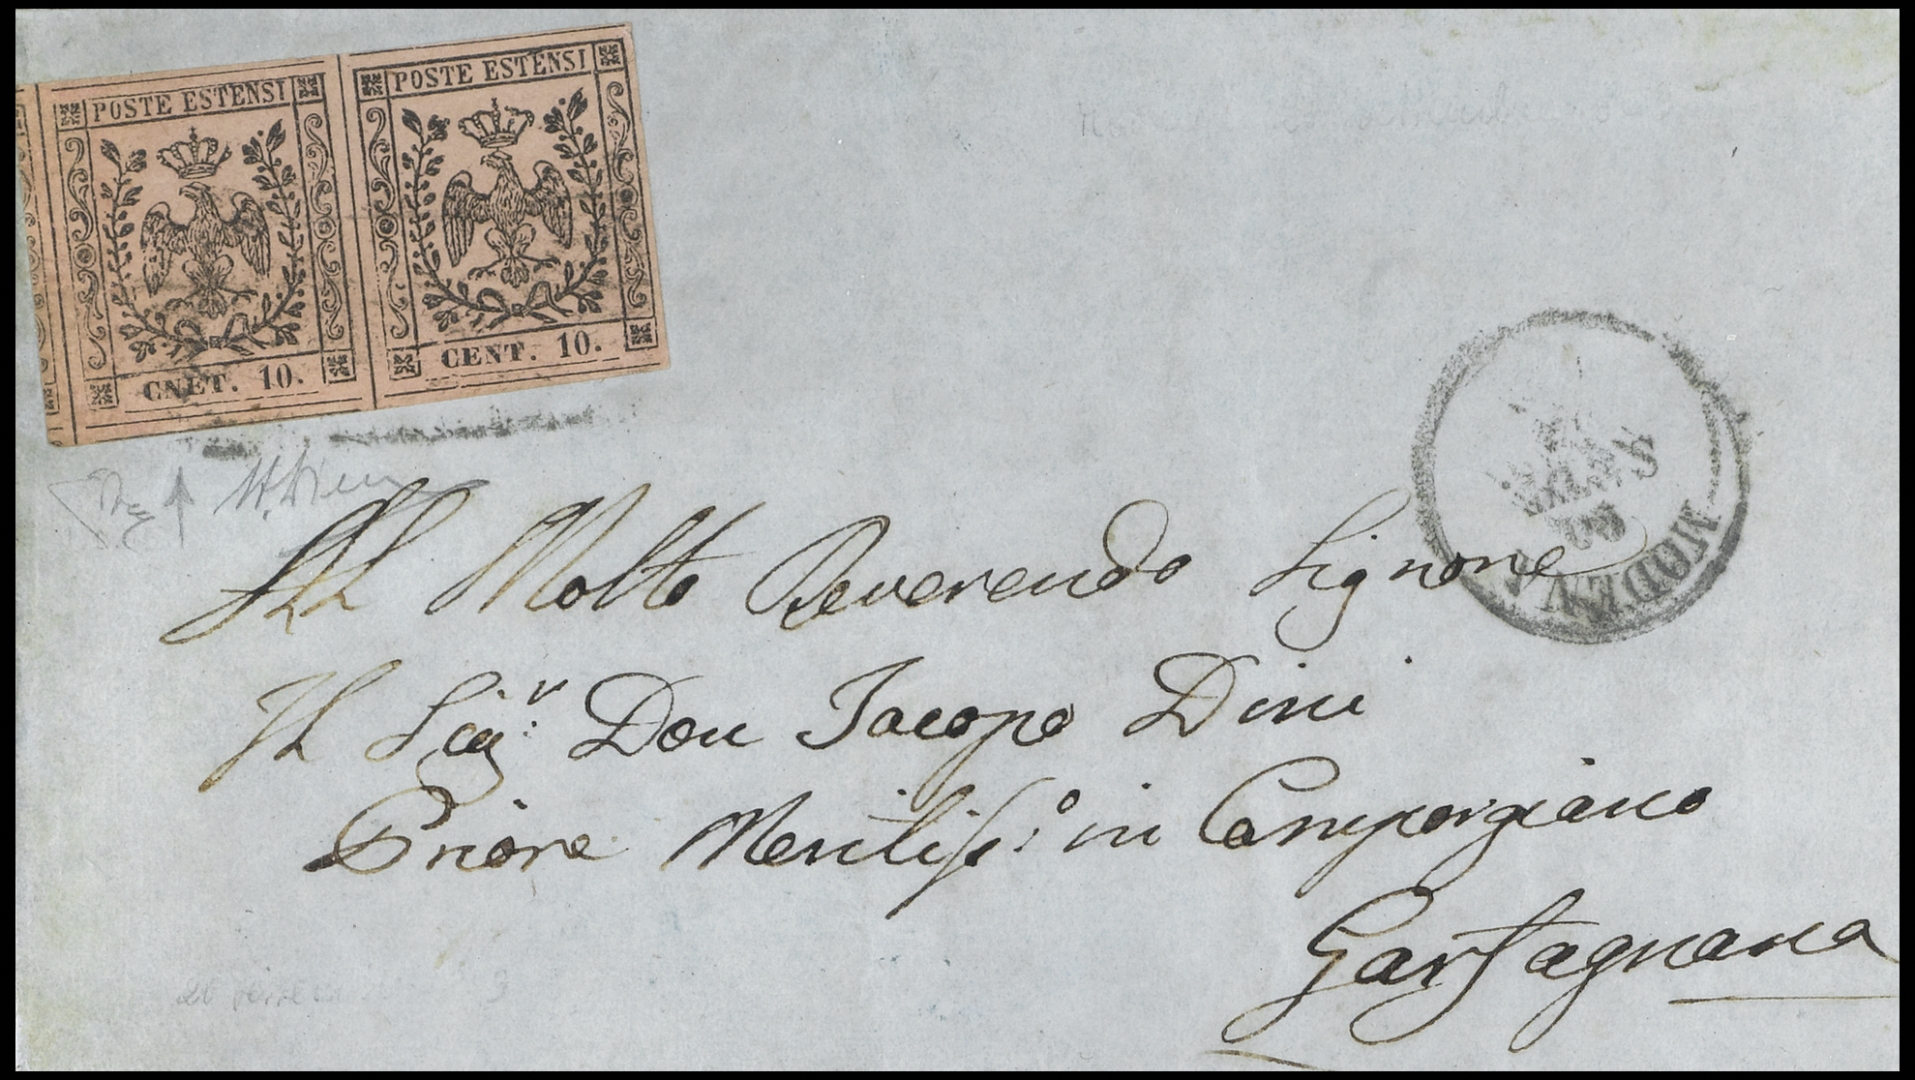 POSTE ESTENSI
POSTE ESTENSI
CNET. 10.
CENT. 10.
MODENA
All Molto Reverendo Signore
Il Sigr: Don Jacopo Dini
Priore Meritiss:o in Camporgiano
Garfagnana